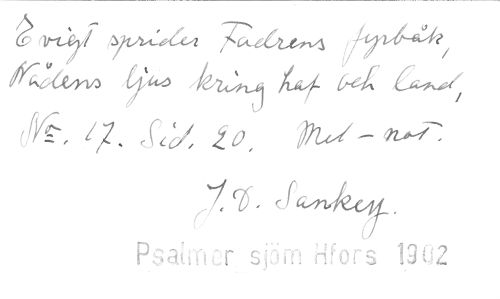 Evigt sprider Fadrens fyrbåk,
Nådens ljus kring haf och land,
No. 17. Sid. 20. Mel-not.
J. D. Sankey.
Psalmer sjöm Hfors 1902